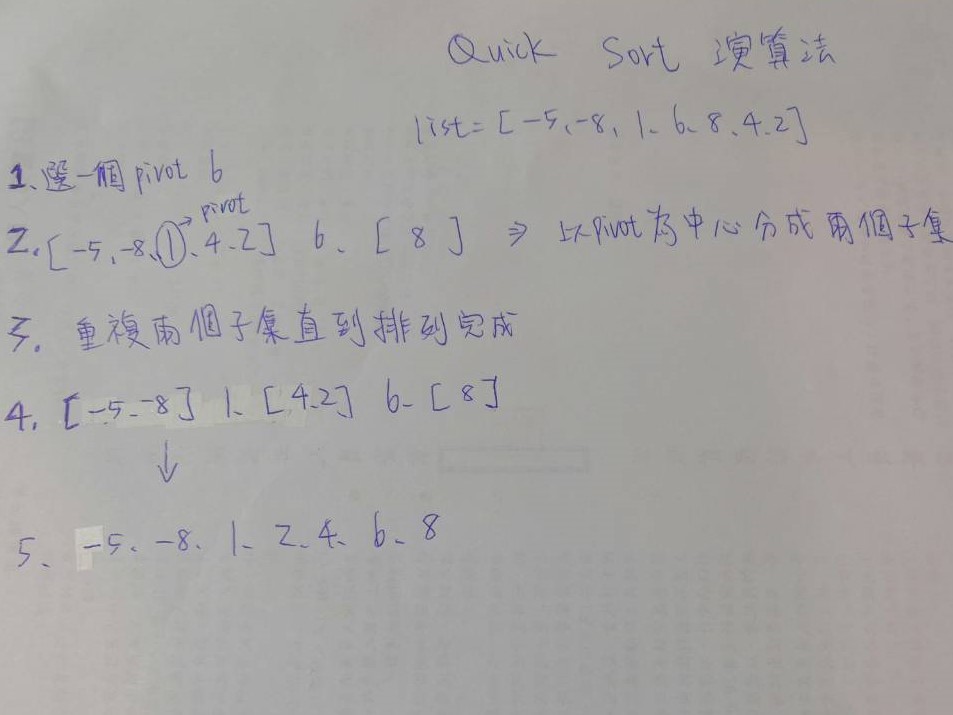 Quick Sort 演算法
list= [-5、-8, 1、6、8、4、2]
1、選一個 pivot 6
→ pivot
2. [-5、-8、1、4、2] 6、[ 8 ] ⇒ 以pivot為中心分成兩個子集
3. 重複兩個子集直到排列完成
4. [-5、-8] 1、[4、2] 6、[8]
↓
5、 -5、-8、1、2、4、6、8